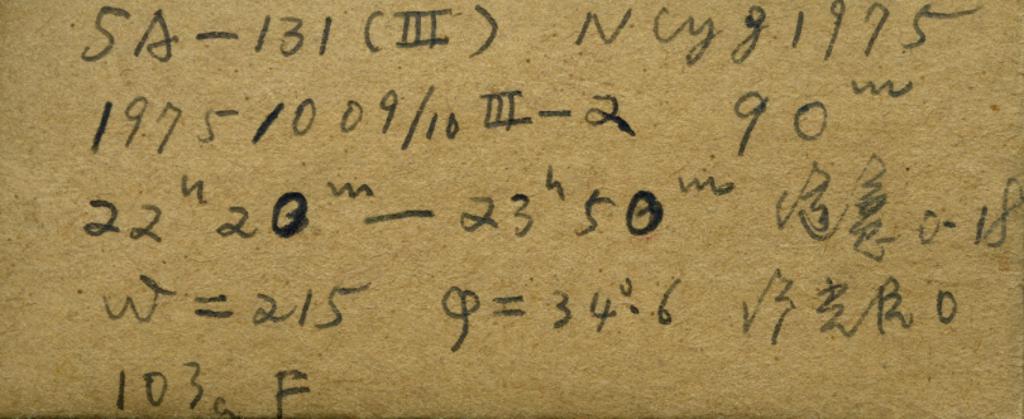 SA-131 (III) N Cyg 1975
1975 10 09/10 III-2 90ᵐ
22ʰ 20ᵐ — 23ʰ 50ᵐ 随意 0-18
W = 215 φ = 34°.6 0
103a F